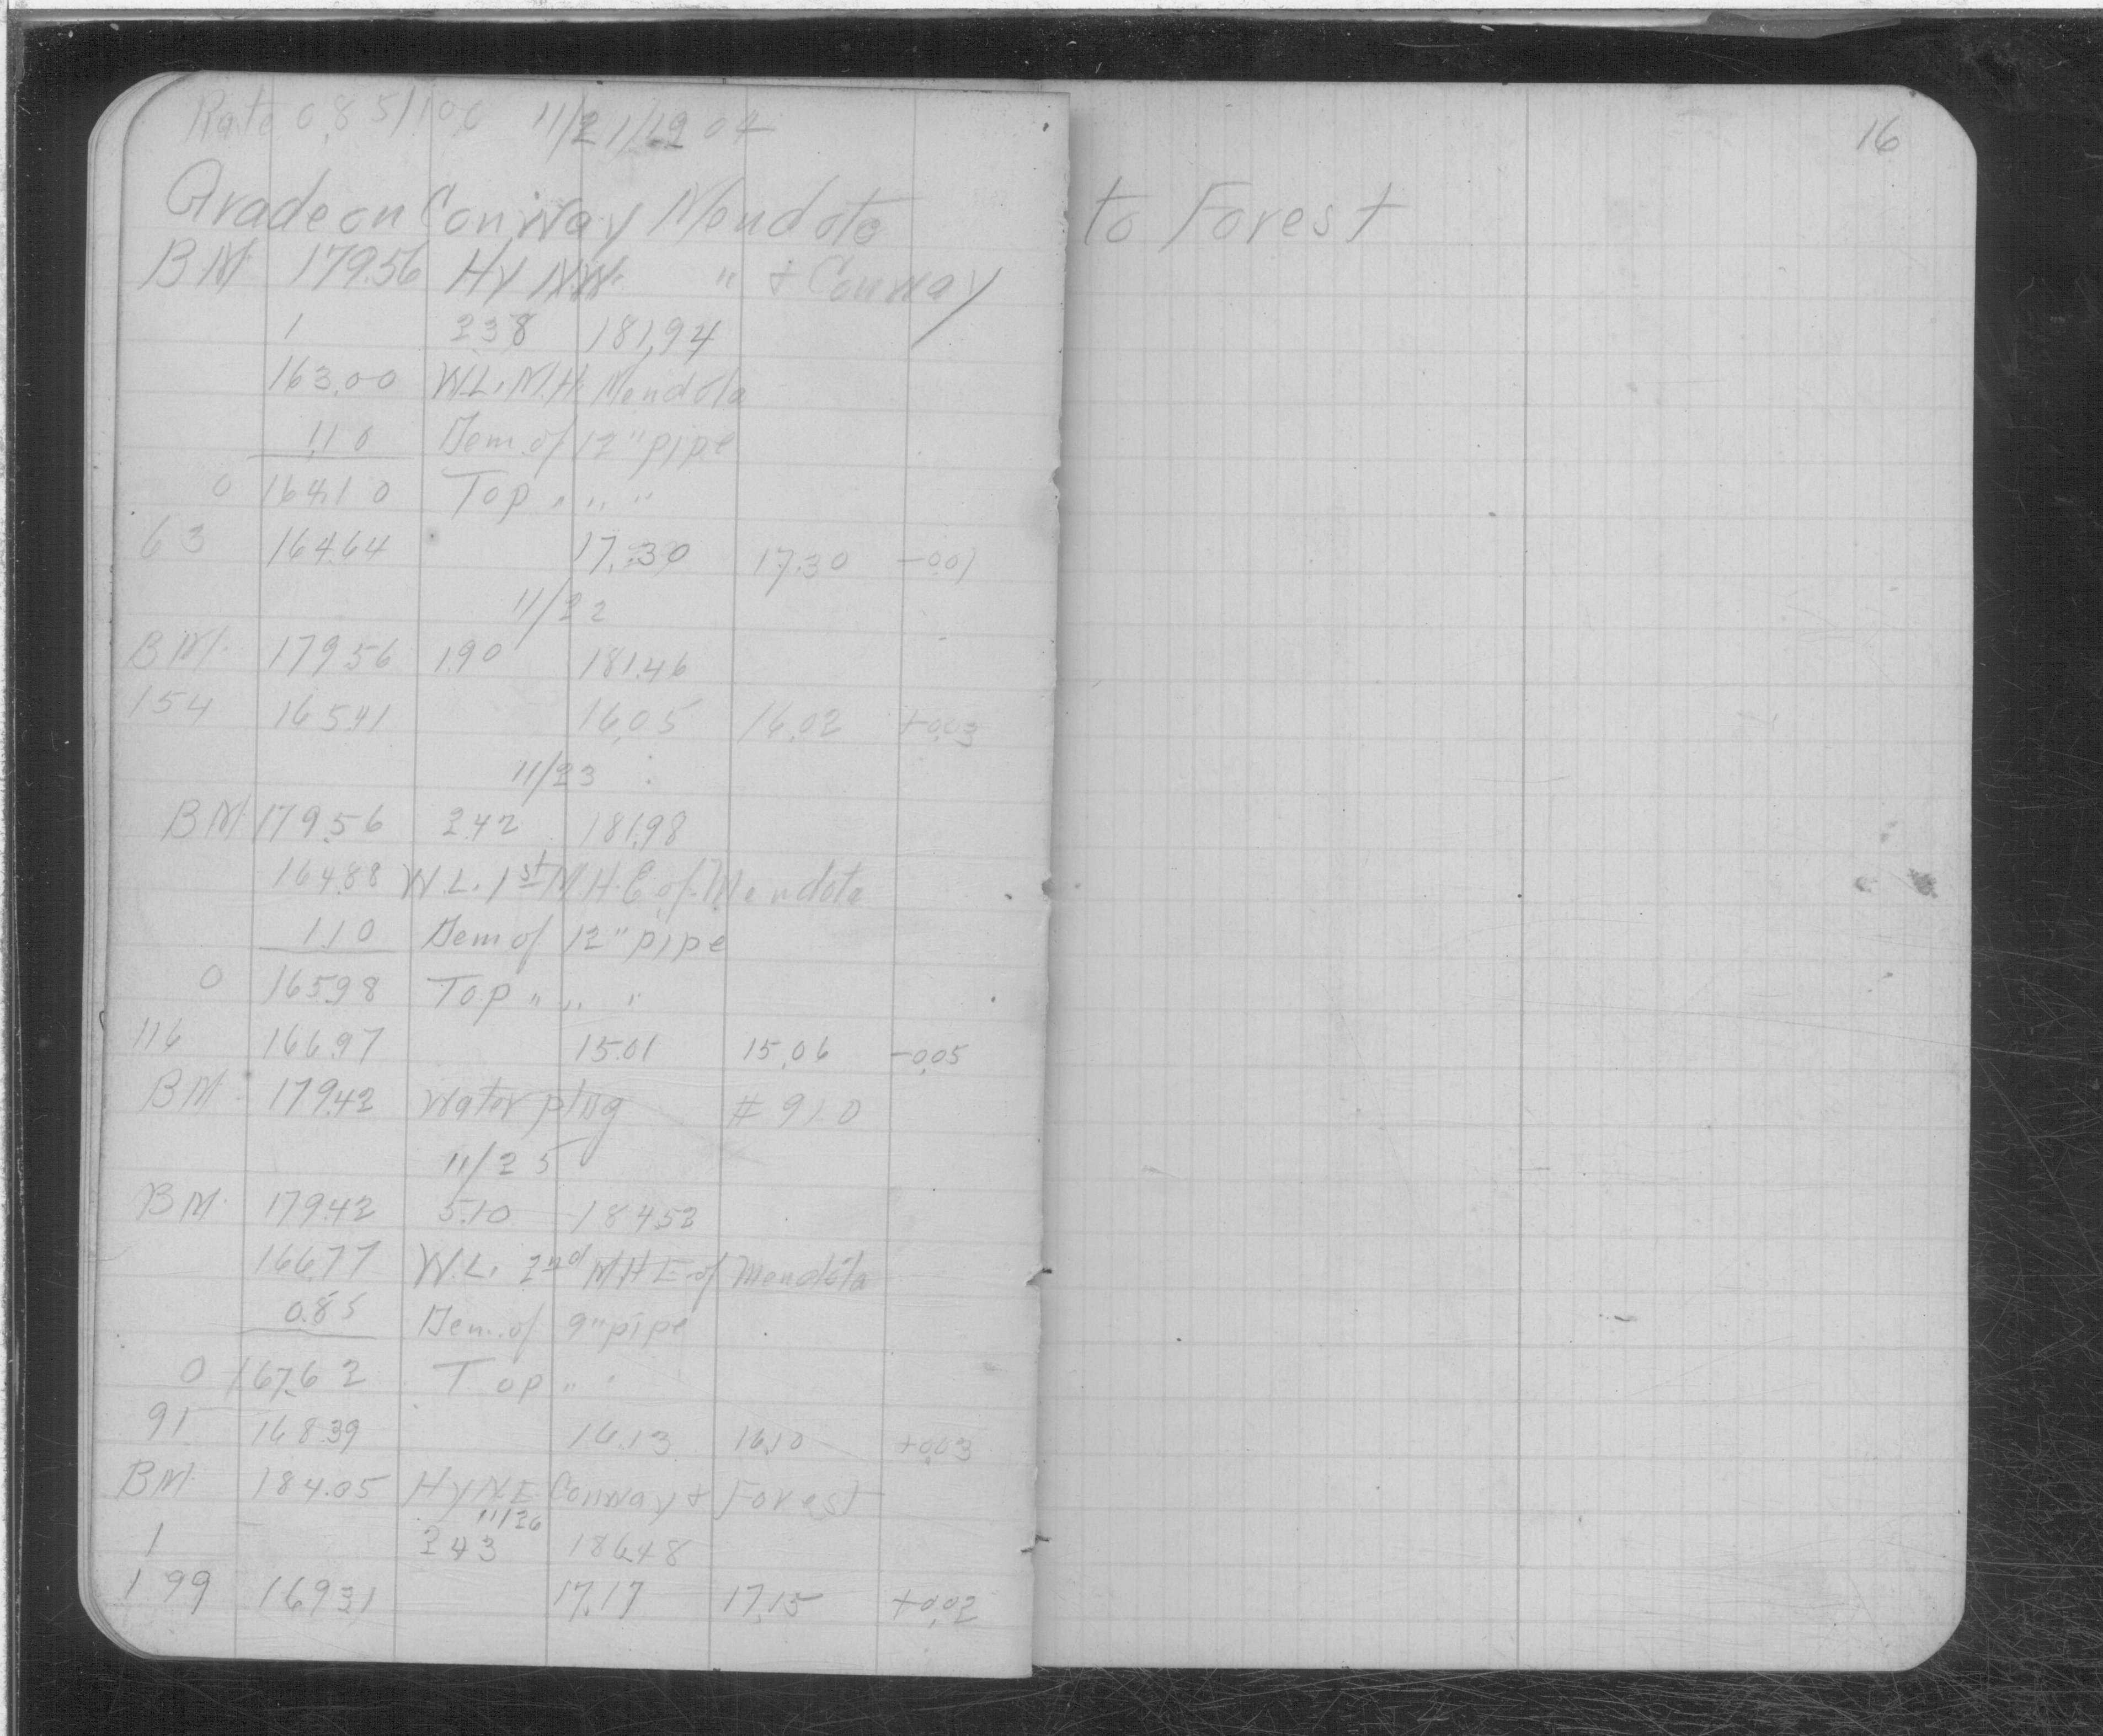 16
Rate 0.85/100 11/21/1904
Grade on Conway Mendota to Forest
BM 179.56 Hy NW " & Conway
1 2.38 181.94
163.00 W.L. M.H. Mendota
1.10 Dem. of 12" pipe
0 164.10 Top " " "
63 164.64 17.30 17.30 -0.01
11/22
BM. 179.56 1.90 181.46
154 165.41 16.05 16.02 +0.03
11/23
BM 179.56 2.42 181.98
164.88 W.L. 1st M.H. E of Mendota
1.10 Dem of 12" pipe
0 165.98 Top " " "
116 166.97 15.01 15.06 -0.05
BM. 179.42 Water plug # 910
11/25
BM. 179.42 5.10 184.52
166.77 W.L. 2nd MH E of Mendota
0.85 Dem. of 9" pipe
0 167.62 Top " "
91 168.39 16.13 16.10 +0.03
BM. 184.05 Hy N.E Conway & Forest
11/26
1 2.43 186.48
199 169.31 17.17 17.15 +0.02